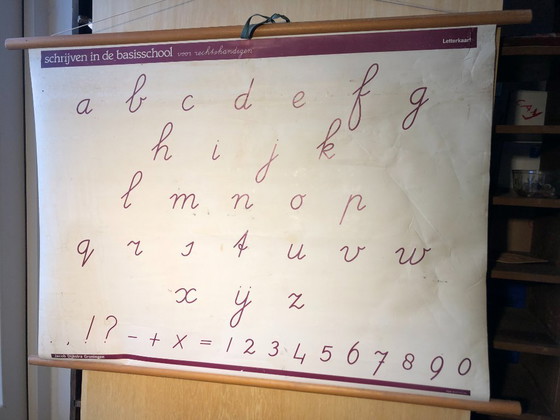 schrijven in de basisschool voor rechtshandigen
Letterkaart
a b c d e f g
h i j k
l m n o p
q r s t u v w
x ij z
. , ! ? - + x = 1 2 3 4 5 6 7 8 9 0